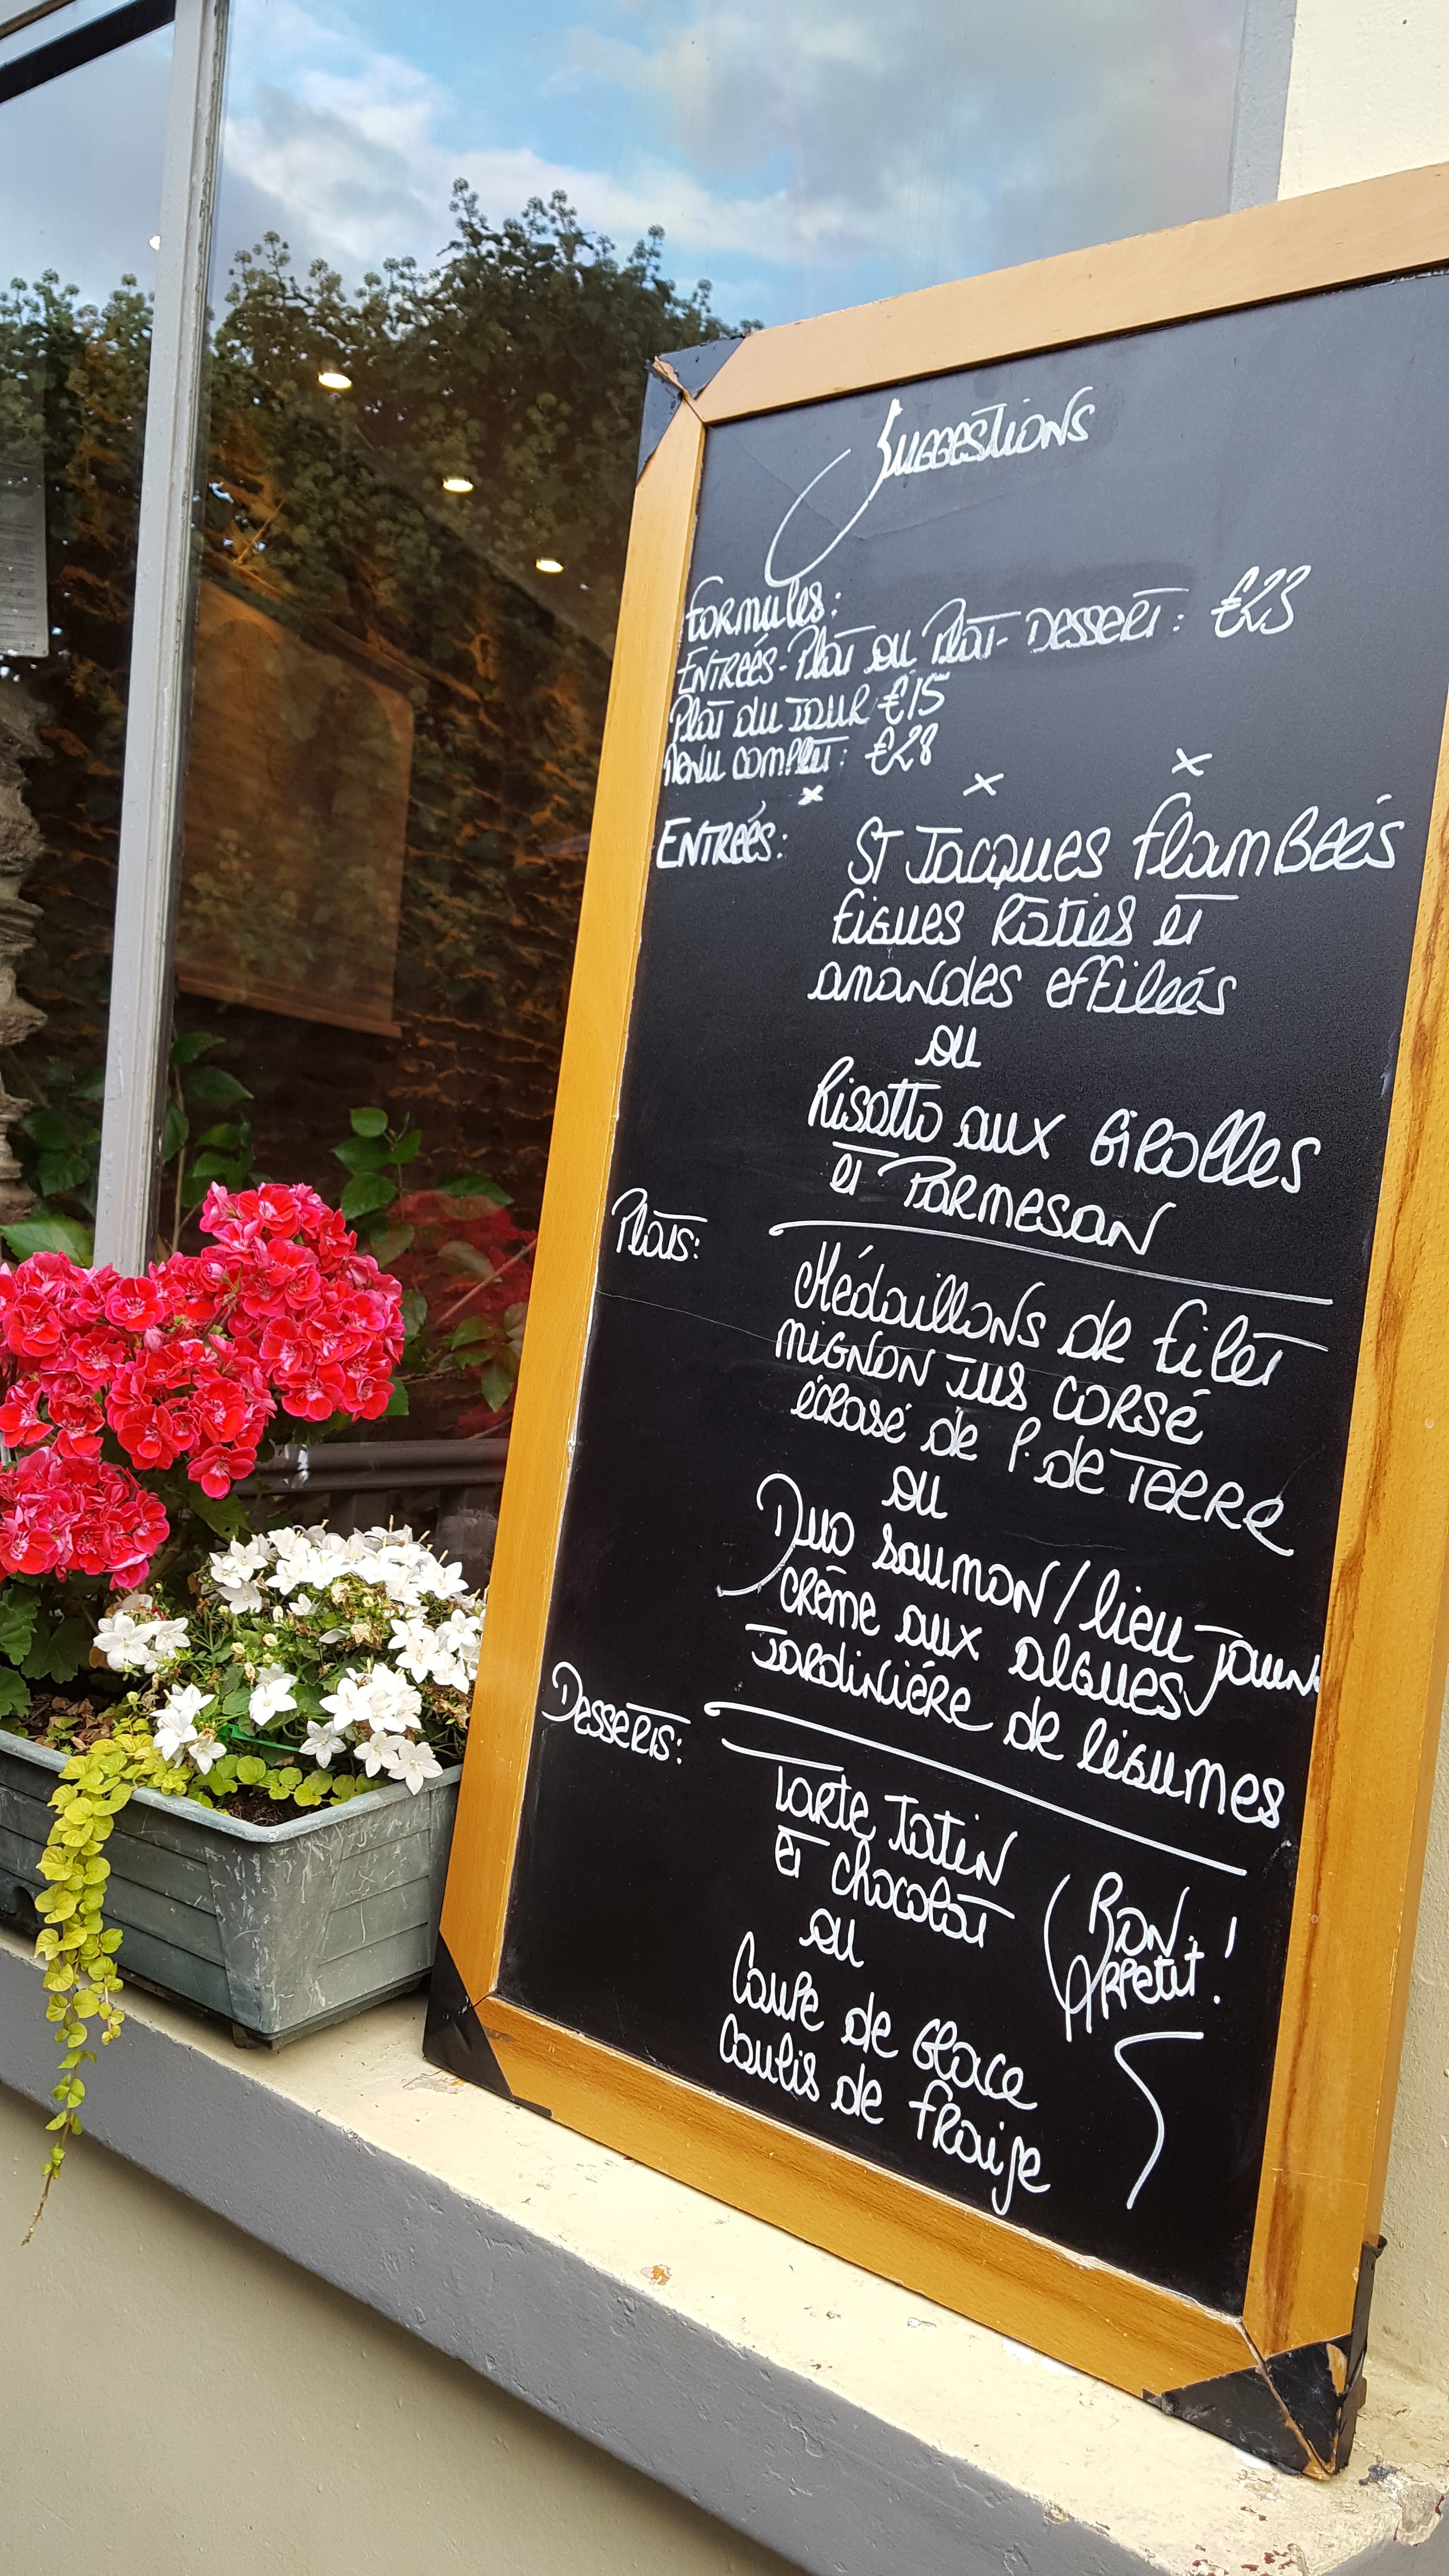 Suggestions
Formules:
Entreés-Plat ou Plat-Dessert: €23
Plat du Jour €15
Menu complet: €28
x x x
Entreés: St Jacques flambeés
figues Rôties et
amandes effileés
ou
Risotto aux Girolles
et Parmesan
Plats: Médaillons de filet
mignon jus corsé
écrasé de P. de Terre
ou
Duo saumon/lieu jaune
crème aux algues
Jardinière de légumes
Desserts: Tarte Tatin
et chocolat
ou
Coupe de Glace
Coulis de fraise
Bon
Appetit!